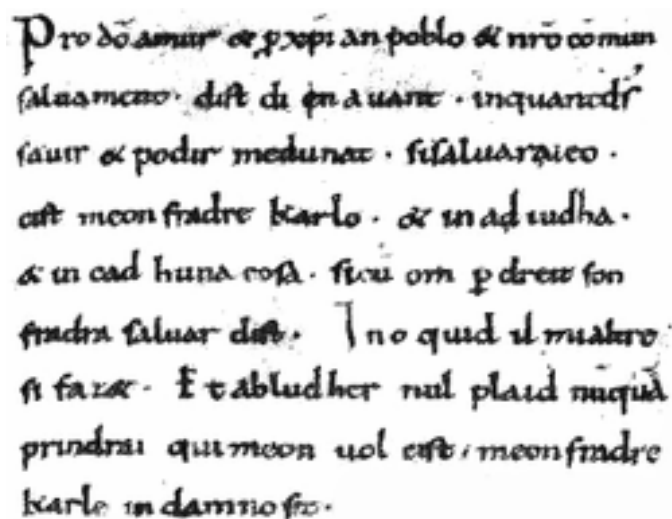 Pro dō amur & ꝑ xp̄i an poblo & nrō cōmun
saluament. dist di en auant. inquantds̄
sauir & podir medunat. sisaluaraieo.
cist meon fradre karlo. & in ad iudha.
& in cad huna cosa. sicū om ꝑ dreit son
fradra saluar dist. Ino quid il mialtre
si faz&. Et abludher nul plaid nūquā
prindrai qui meon uol cist, meonfradre
karle in damno sit.